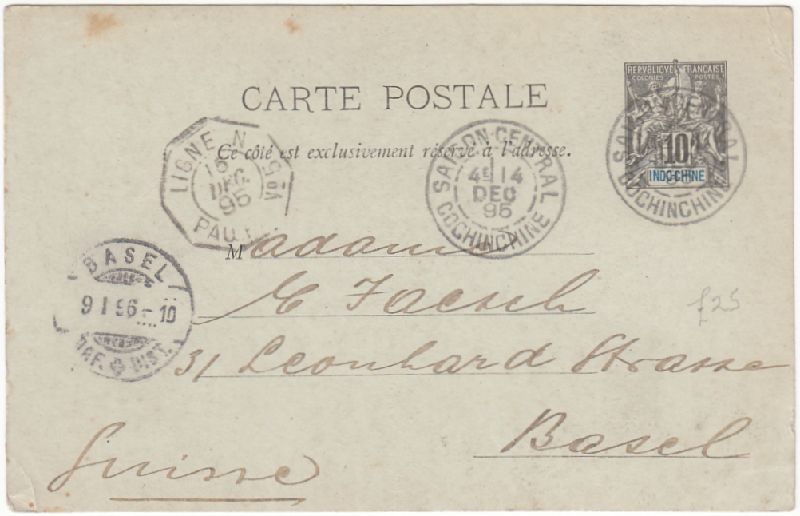 REPUBLIQUE FRANÇAISE
COLONIES POSTES
10
INDO-CHINE
CARTE POSTALE
Ce côté est exclusivement réservé à l'adresse.
LIGNE N
PAQ
DEC
95
SAIGON-CENTRAL
4E 14
DEC
95
COCHINCHINE
SAIGON-CENTRAL
COCHINCHINE
BASEL
9 I 96 - 10
BRF. DIST.
Madame
E Faesch
31 Leonhard Strasse
Basel
Suisse
£25